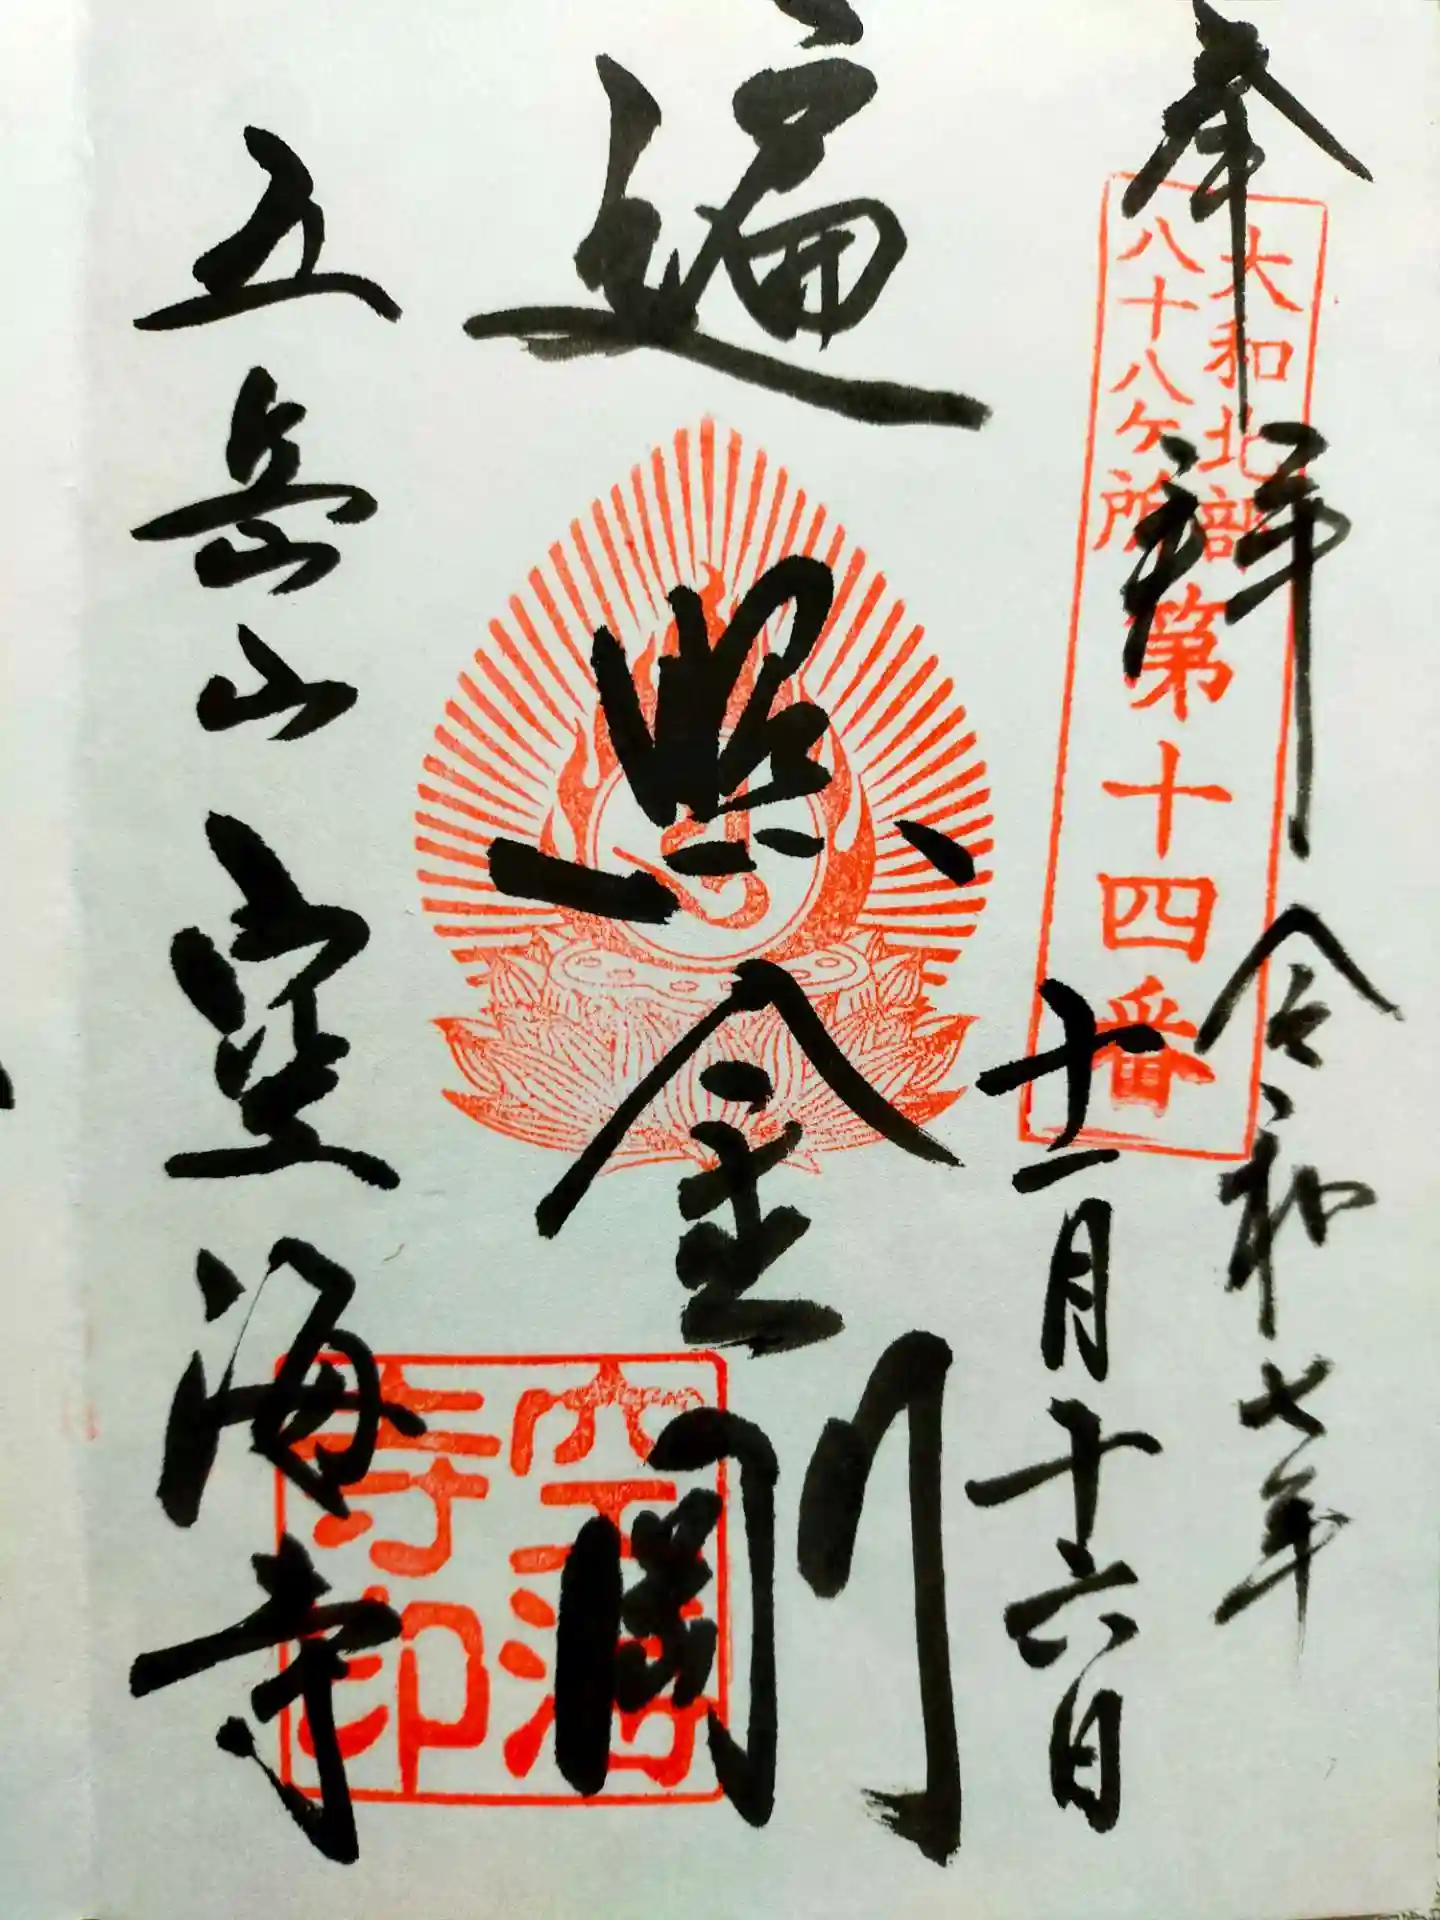 奉拝
大和北部
八十八ヶ所
第十四番
令和七年
十一月十六日
遍照金剛
五岳山 空海寺
空海
寺印